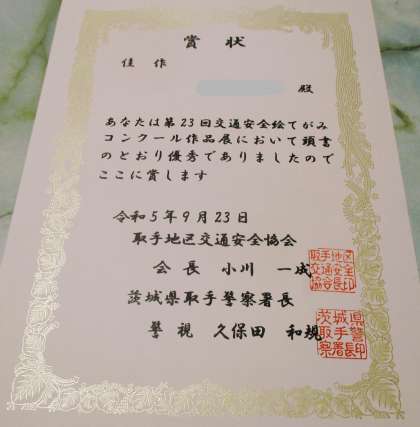 賞状
佳作
殿
あなたは第23回交通安全絵てがみ
コンクール作品展において頭書
のとおり優秀でありましたので
ここに賞します
令和5年9月23日
取手地区交通安全協会
会長 小川 一成
取手地区
交通安全
協会長印
茨城県取手警察署長
警視 久保田 和規
茨城県警
取手警
察署長印